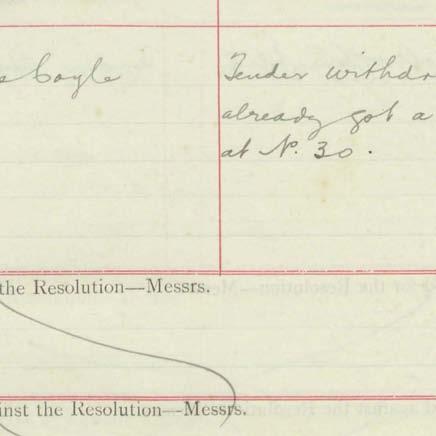 Coyle
Tender withdr
already got a
at N. 30.
the Resolution—Messrs.
inst the Resolution—Messrs.